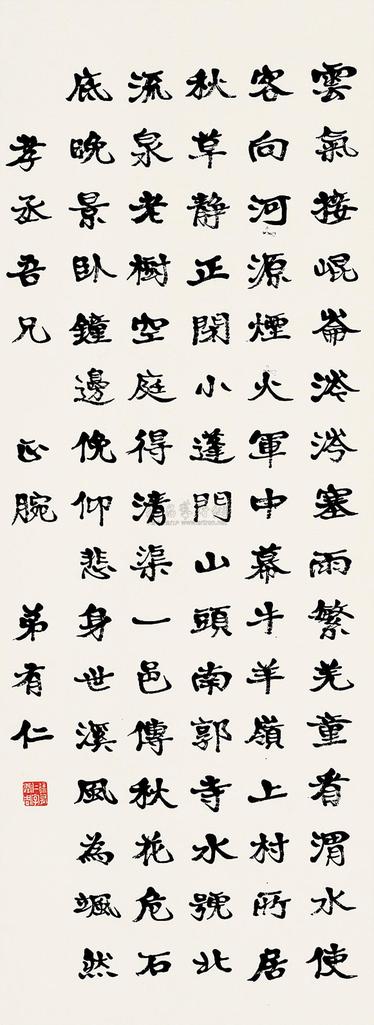 雲氣接崐崙涔涔塞雨繁羌童看渭水使
客向河源煙火軍中幕牛羊嶺上村所居
秋草静正閉小蓬門山頭南郭寺水號北
流泉老樹空庭得清渠一邑傳秋花危石
底晚景臥鐘邊俛仰悲身世溪風為颯然
孝丞吾兄 正腕 弟有仁